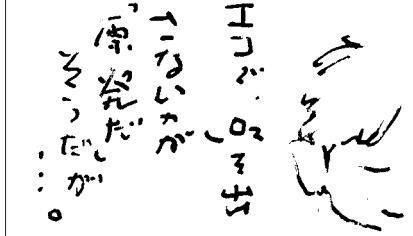 エコで、O2を出
さないのが
原発だ
そうだが
…。